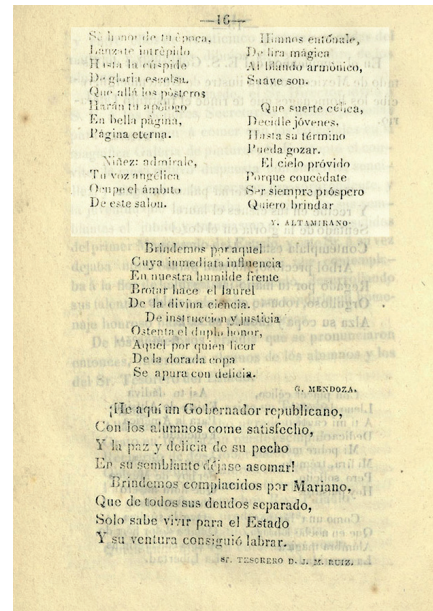 —16—
Sé honor de tu época,
Lánzate intrépido
Hasta la cúspide
De gloria escelsa.
Que allá los pósteros
Harán tu apólogo
En bella página,
Página eterna.
Niñez: admírale,
Tu voz angélica
Ocupe el ámbito
De este salon.
Himnos entónale,
De lira mágica
Al blando armónico,
Suave son.
Que suerte célica,
Decidle jóvenes,
Hasta su término
Pueda gozar.
El cielo próvido
Porque coucédate
Ser siempre próspero
Quiero brindar
Y. ALTAMIRANO
Brindemos por aquel
Cuya inmediata influencia
En nuestra humilde frente
Brotar hace el laurel
De la divina ciencia.
De instruccion y justicia
Ostenta el duplo honor,
Aquel por quien licor
De la dorada copa
Se apura con delicia.
G. MENDOZA.
¡He aquí un Gobernador republicano,
Con los alumnos come satisfecho,
Y la paz y delicia de su pecho
En su semblante déjase asomar!
Brindemos complacidos por Mariano,
Que de todos sus deudos separado,
Solo sabe vivir para el Estado
Y su ventura consiguió labrar.
Sr. TESORERO D. J. M. RUIZ.